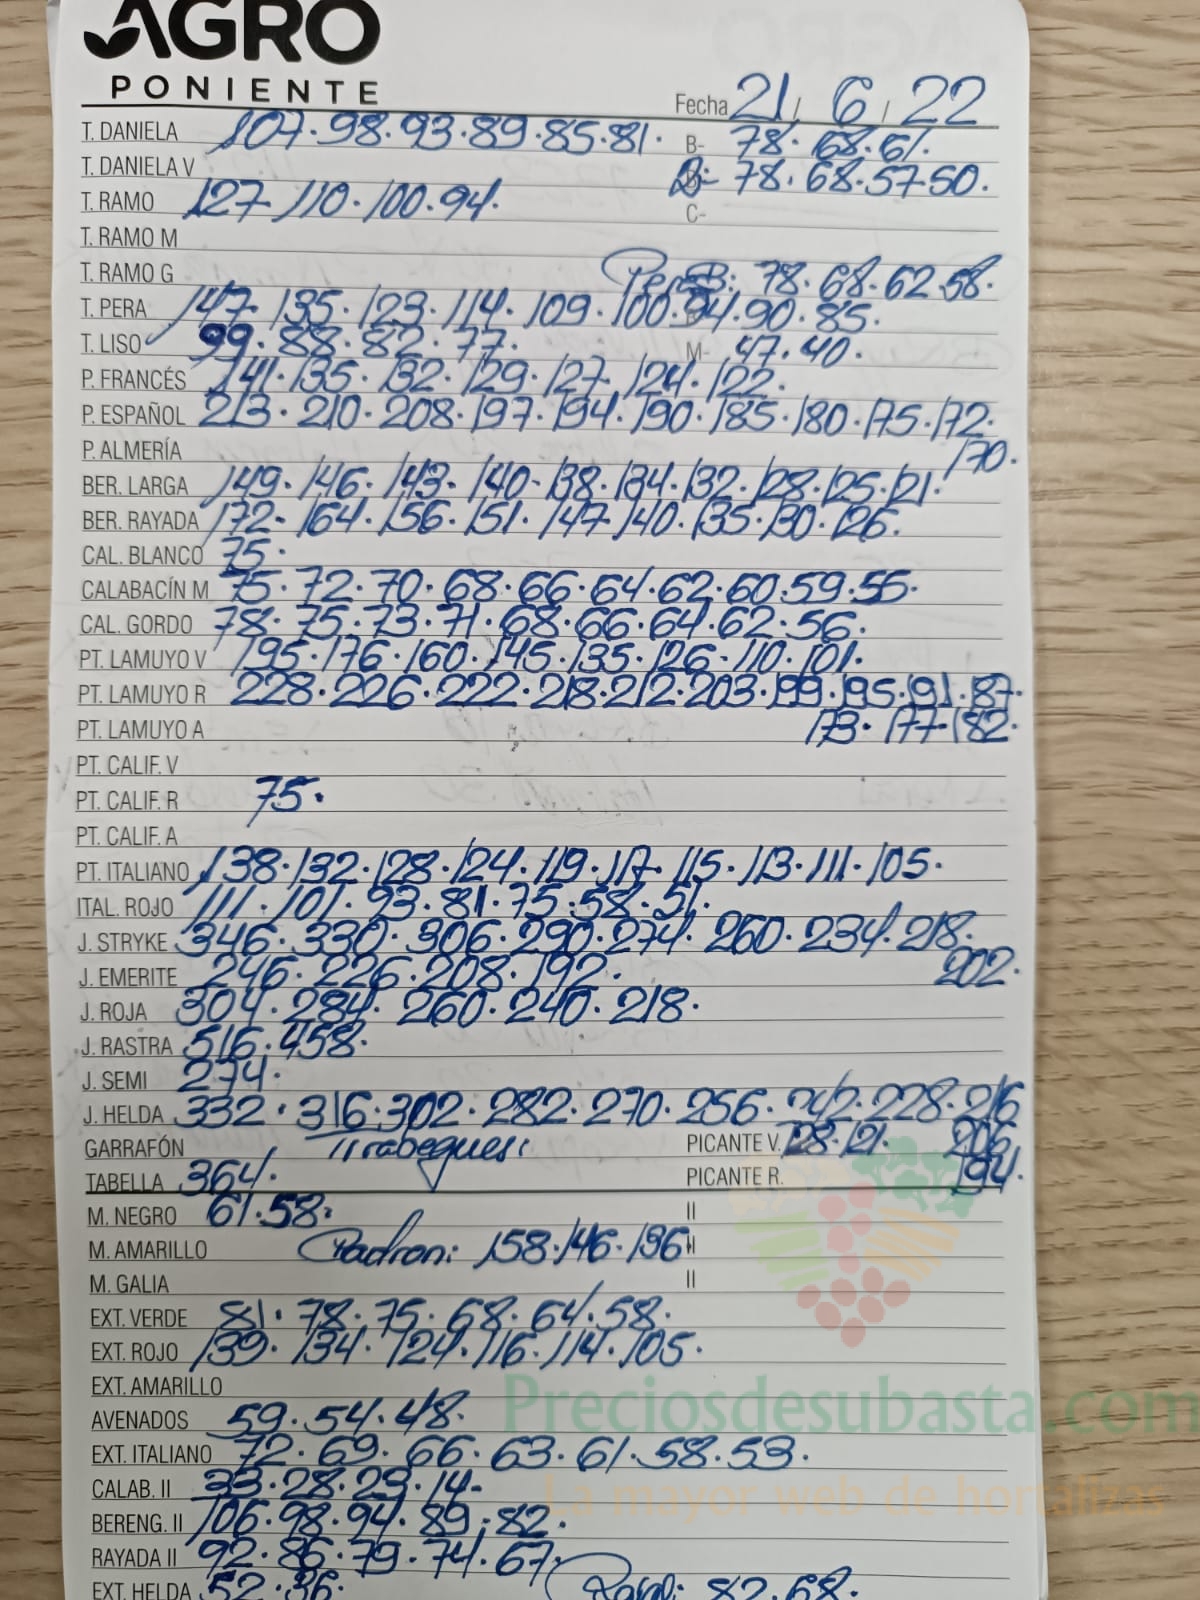 AGRO
PONIENTE
Fecha 21 / 6 / 22
T. DANIELA 107.98.93.89.85.81. B- 78.68.61.
T. DANIELA V B: 78.68.57.50.
T. RAMO 127.110.100.94. C-
T. RAMO M
T. RAMO G Pera B: 78.68.62.58.
T. PERA 147.135.123.114.109.100.94.90.85.
T. LISO 99.88.82.77. M- 47.40.
P. FRANCÉS 141.135.132.129.127.124.122.
P. ESPAÑOL 213.210.208.197.194.190.185.180.175.172.
P. ALMERÍA 170.
BER. LARGA 149.146.143.140.138.134.132.128.125.121.
BER. RAYADA 172.164.156.151.147.140.135.130.126.
CAL. BLANCO 75.
CALABACÍN M 75.72.70.68.66.64.62.60.59.55.
CAL. GORDO 78.75.73.71.68.66.64.62.56.
PT. LAMUYO V 195.176.160.145.135.126.110.101.
PT. LAMUYO R 228.226.222.218.212.203.199.195.191.187.
PT. LAMUYO A 173.177.182.
PT. CALIF. V
PT. CALIF. R 75.
PT. CALIF. A
PT. ITALIANO 138.132.128.124.119.117.115.113.111.105.
ITAL. ROJO 111.101.93.81.75.58.51.
J. STRYKE 346.330.306.290.274.260.234.218.
J. EMERITE 246.226.208.192. 202.
J. ROJA 304.284.260.240.218.
J. RASTRA 516.458.
J. SEMI 274.
J. HELDA 332.316.302.282.270.256.242.228.216
GARRAFÓN Tirabeques: PICANTE V. 128.121. 206.
TABELLA 364. PICANTE R. 194.
M. NEGRO 61.58. II
M. AMARILLO Padron: 158.146.136 II
M. GALIA II
EXT. VERDE 81.78.75.68.64.58.
EXT. ROJO 139.134.124.116.114.105.
EXT. AMARILLO
Preciosdesubasta.com
AVENADOS 59.54.48.
EXT. ITALIANO 72.69.66.63.61.58.53.
CALAB. II 33.28.23.14-
La mayor web de hortalizas
BERENG. II 106.98.94.89.82.
RAYADA II 92.86.79.74.67.
EXT. HELDA 52.36. 82.68.